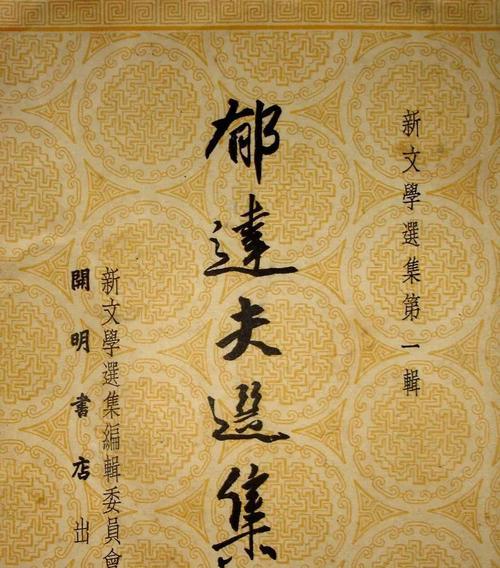 新文學選集第一輯
郁達夫選集
新文學選集編輯委員會
開明書店出